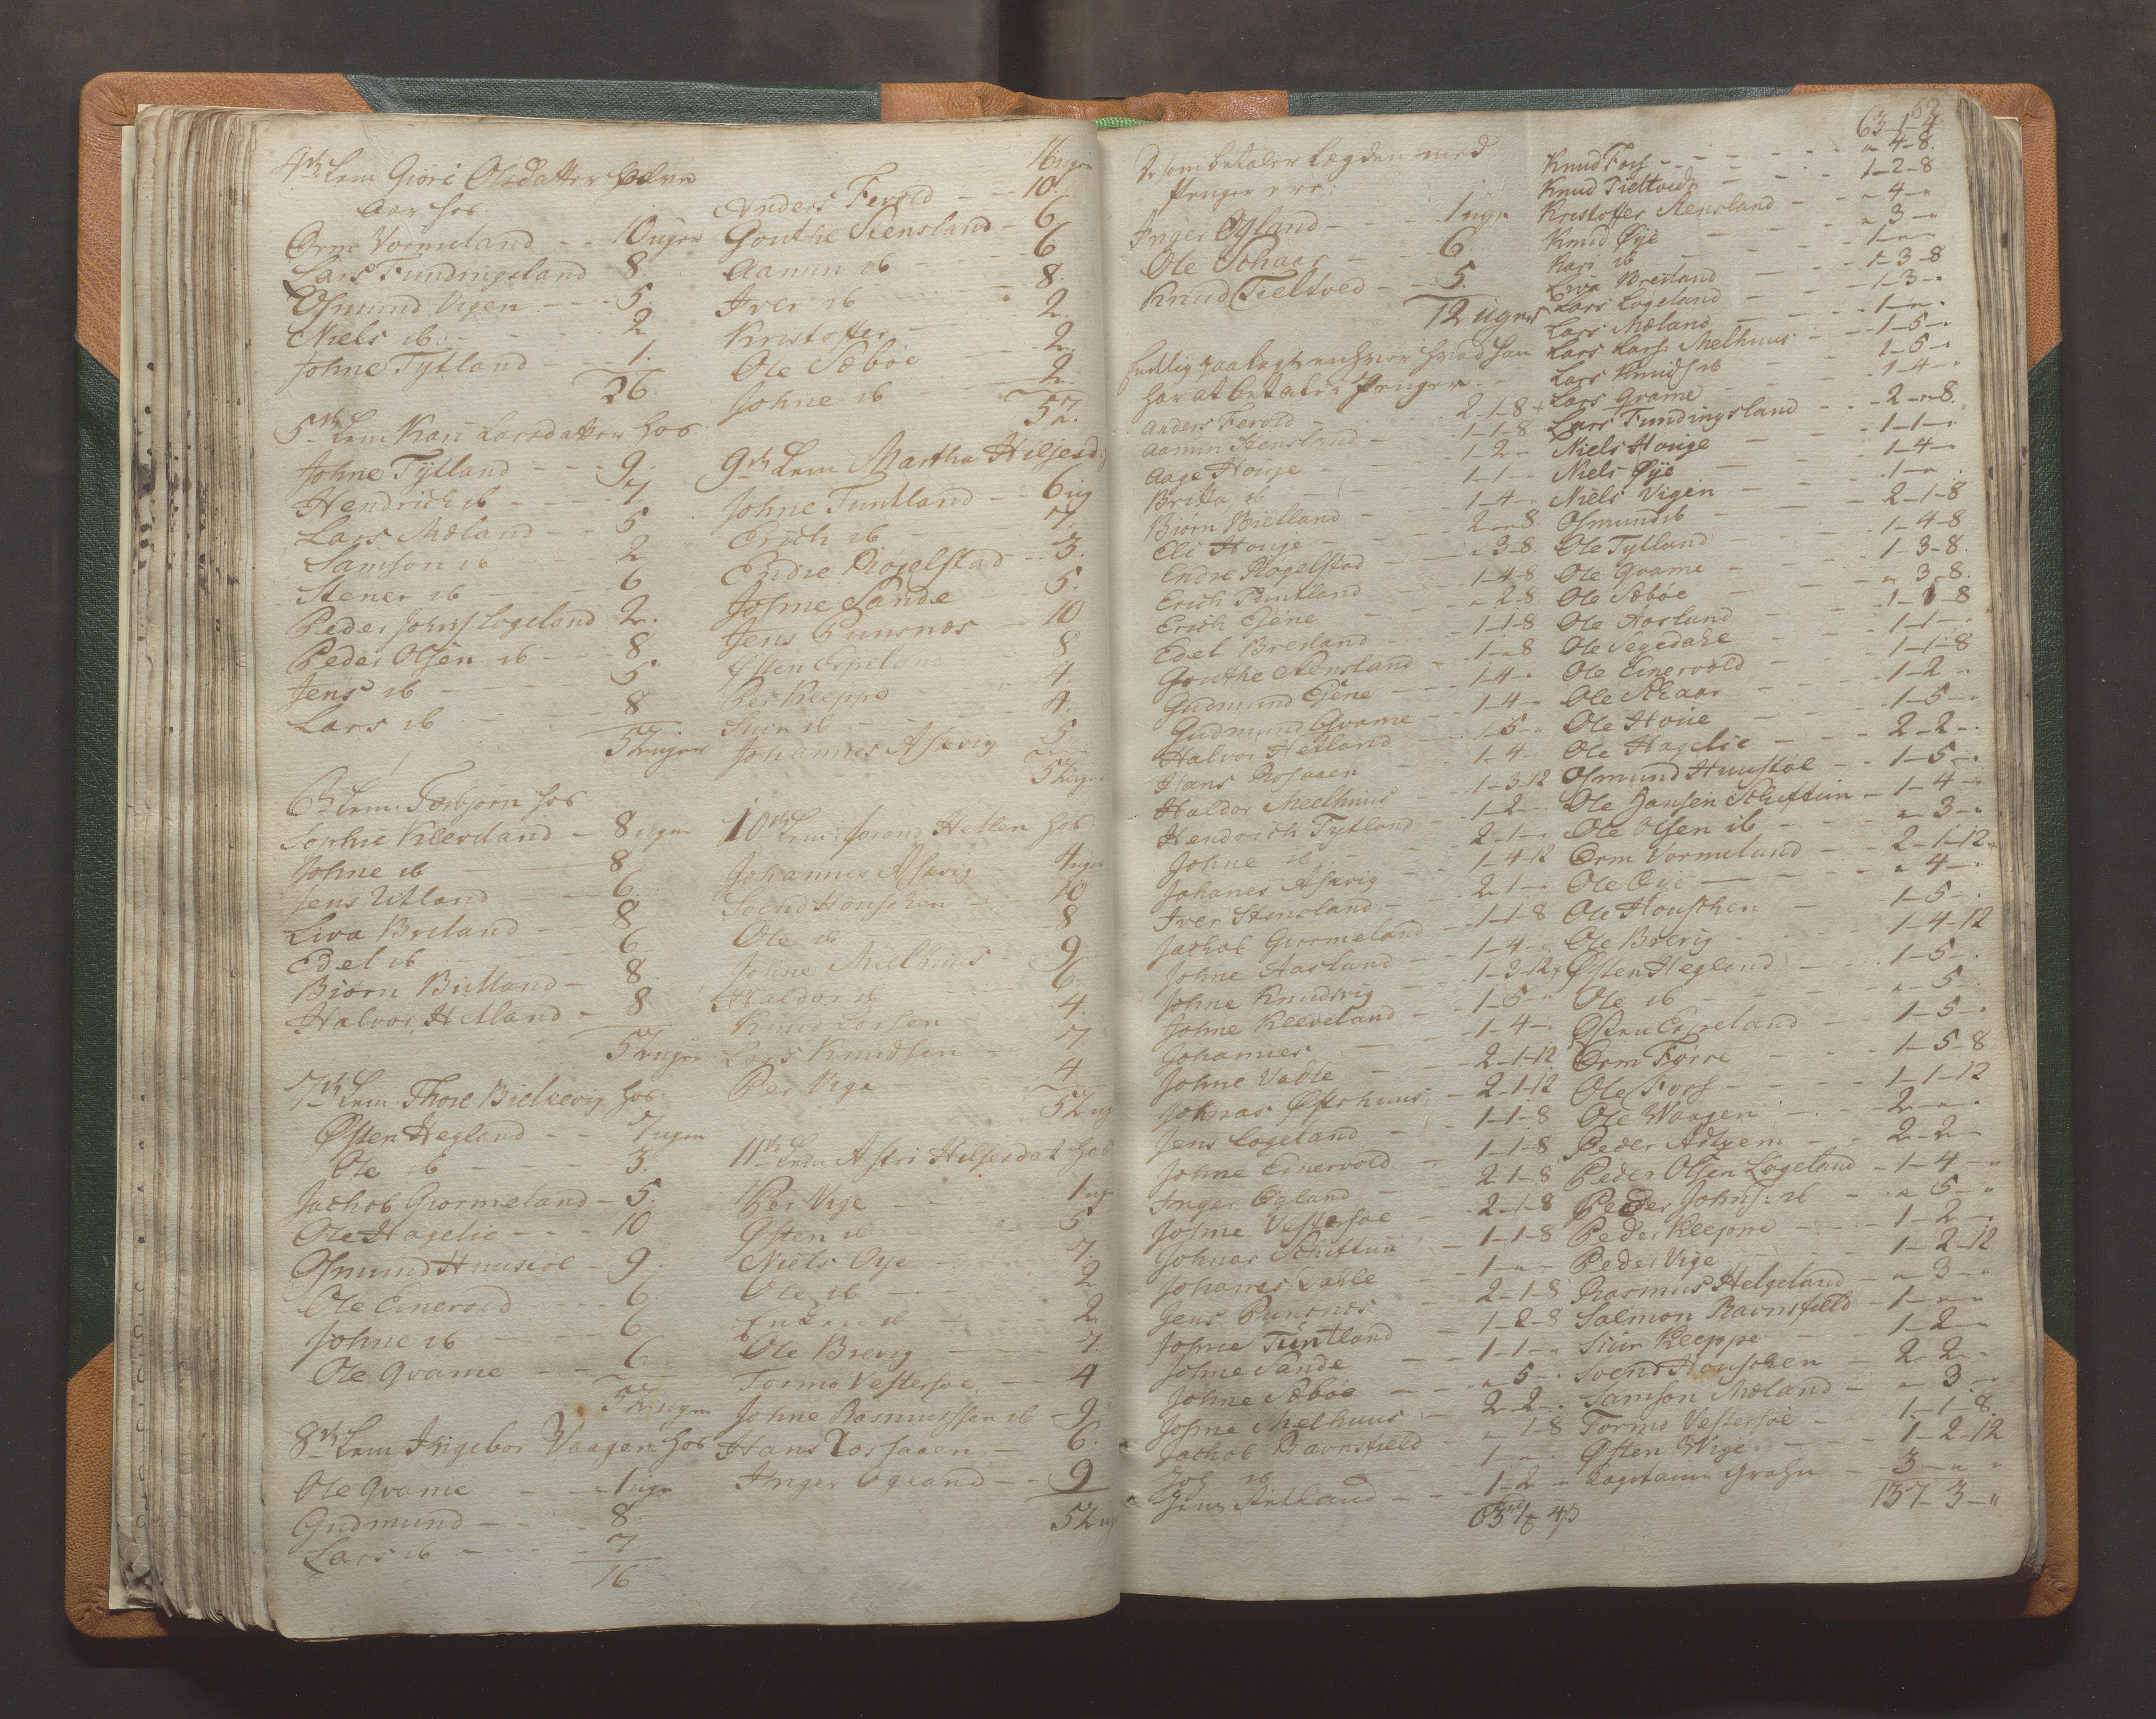 4de Lem Giøri Olsdatter halve
Aar hos.
Orm Vormeland - - 10 uger
Lars Fundingsland 8.
Osmund Vigen - - - 5.
Niels ib: - - - 2
Johne Tytland - - - 1.
26.
5te Lem Kari Larsdatter hos.
Johne Tytland - - - 9.
Hendrich ib - - - 7.
Lars Mæland - - 5
Samson ib - - 2
Stener ib - - - 6
Peder Johns: Logeland 2.
Peder Olsen ib - - - 8
Jens ib - - - 5
Lars ib - - - 8
52 uger
6te Lem: Torbjørn hos
Sophie Kleveland - 8 uger
Johne ib - - 8
Jens Utland - 6.
Liva Breland - 8
Edel ib - - - 6.
Biørn Bielland - 8.
Halvor Hetland - 8
52 uger
7de Lem Thore Bielkevig hos.
Østen Hegland - - 7 uger
Ole ib - - - 3.
Jachob Giormeland - 5.
Ole Hagelie - - - 10
Osmund Huustøl - 9.
Ole Einervold - - - 6.
Johne ib - - - 6
Ole Qvame - - - 6.
52 uger
8de Lem Ingebor Vaagen hos
Ole Qvame - - 1 uge
Gudmund - - - 8.
Lars ib - - - 7
16
16 uger
Anders Ferold - - 10.
Gouthe Stensland - 6
Aamun ib - - - 6.
Iver ib - - - 8.
Kristoffer - - - 2.
Ole Sæbøe - - - 2.
Johne ib - - - 2.
52.
9de Lem Martha Hiljesd:
Johne Tuntland - - 6 ug
Erich ib - - 7.
Endre Rogelstad - - 3.
Johne Sande - - 5.
Jens Punsnæs - 10
Østen Espeland 8
Per Kleppe - - 4.
Siur ib - - - 4.
Johannes Askvig 5
52 uger
10de Lem: Jorond Hellen hos
Johannes Askvig - 4 uger
Svend Houschen - - 10
Ole ib - - - 8
Johne Melhuus - 9
Haldor ib - - 6.
Knud Larsen - - 4.
Lars Knudsen - 7.
Per Vige - - - 4
52 ug
11te Lem Astri Hilsesdat hos
Per Vige - - 1 ug
Østen ib - - - 5
Niels Øye - - - 7.
Ole ib - - - 2
Enken ib - - - 2
Ole Brevig - - - 7.
Tormo Vestersøe - - 4
Johne Rasmussen ib - 9.
Hans Rossaaen - 6.
Inger Egeland - - 9.
52 ug
62
De som betaler Lægden med
Penger ere:
Inger Øgland - - - 1 uge
Ole Schaar - - 6.
Knud Tieltved - - 5.
12 uger
Endelig paalagt enhver hvad han
har at betale i Penger. -
Anders Ferold - - 2-1-8 +
Aamun Stensland - 1-1-8
Aage Houge - - 1-2 -
Britta ib - - 1-1 -
Biørn Bielland - - 1-4 -
Eli Houge - - - 2-"-8
Endre Rogelstad - - "-3-8.
Erich Tuntland - - 1-4-8
Erich Eiene - - - "-2-8
Edel Breiland - - - 1-1-8
Gouthe Stensland - - 1-"-8
Gudmund Eiene - - - 1-4-"
Gudmund Qvame - - 1-4-"
Halvor Hetland - - 1-5-"
Hans Rossaaen - - 1-4-
Haldor Meelhuus - - 1-3-12
Hendrich Tytland - - 1-2-"
Johne ib - - - 2-1-"
Johanes Askvig - - 1-4-12
Iver Stensland - - 2-1-"
Jachob Giormeland - - 1-1-8
Johne Aasland - - 1-4-"
Johne Knudsvig - - 1-3-12 +
Johne Kleeveland - - 1-5-"
Johannes - - - 1-4-"
Johne Vadle - - 2-1-12
Johnas Østrhuus - 2-1-12
Jens Logeland - - 1-1-8
Johne Einervold - 1-1-8
Inger Egland - - 2-1-8
Johne Vestersøe - - 2-1-8
Johnas Schiftun - 1-1-8
Johanes Dahle - - 1-"-"
Jens Punsnes - - 2-1-8
Johne Tuntland - 1-2-8
Johne Sande - - 1-1-"
Johne Sæbøe - - "-5-"
Johne Melhuus - 2-2-"
Jachob Ravnsfield - "-1-8
ib - - 1-"-"
Jens Utland - - - 1-2-"
63 rd 1 4 s
63-1-4.
Knud Foss - - - - "-4-8.
Knud Tieltvedt - - - 1-2-8
Kristoffer Stensland - - "-4-"
Knud Øye - - - "-3-"
Kari ib - - - 1-"-"
Liva Breiland - - 1-3-8
Lars Logeland - - 1-3-"
Lars Mæland - - - 1-"-"
Lars Larss: Melhuus - - 1-5-"
Lars Knuds: ib - - 1-5-"
Lars Qvame - - 1-4-"
Lars Fundingsland - - 2-"-8.
Niels Houge - - - 1-1-"
Niels Øye - - - 1-4-"
Niels Vigen - - 1-"-"
Osmund ib - - - 2-1-8
Ole Tytland - - - 1-4-8
Ole Qvame - - - 1-3-8.
Ole Sæbøe - - - "-3-8.
Ole Aasland - - 1-1-8
Ole Segedahl - - 1-1-"
Ole Einervold - - 1-1-8
Ole Schaar - - - 1-2-"
Ole Houe - - - 1-5-"
Ole Hagelie - - - 2-2-"
Osmund Huustøl - - 1-5-"
Ole Hansen Schiftun - 1-4-"
Ole Olsen ib - - "-3-"
Orm Vormeland - - 2-1-12 +
Ole Øye - - - "-4-"
Ole Houschen - - 1-5-"
Ole Brevig - - - 1-4-12
Østen Hegland - - 1-5-"
Ole ib - - - "-5-"
Østen Espeland - - 1-5-"
Orm Førre - - - 1-5-8
Ole Foss - - - 1-1-12
Ole Waagen - - - 2-"-"
Peder Adtzem - - 2-2-
Peder Olsen Logeland - 1-4-"
Peder Johns: ib - - "-5-"
Peder Kleppe - - - 1-2-"
Peder Vige - - 1-2-12
Rasmus Helgeland - "-3-"
Salmon Ravnsfield - 1-"-"
Siur Kleppe - - 1-2-"
Svend Houschen - 2-2-"
Samson Mæland - "-3-"
Tormo Vestersøe - 1-1-8.
Østen Wige - - 1-2-12
Capitaine Grahn - - 3-"-"
137-3-"